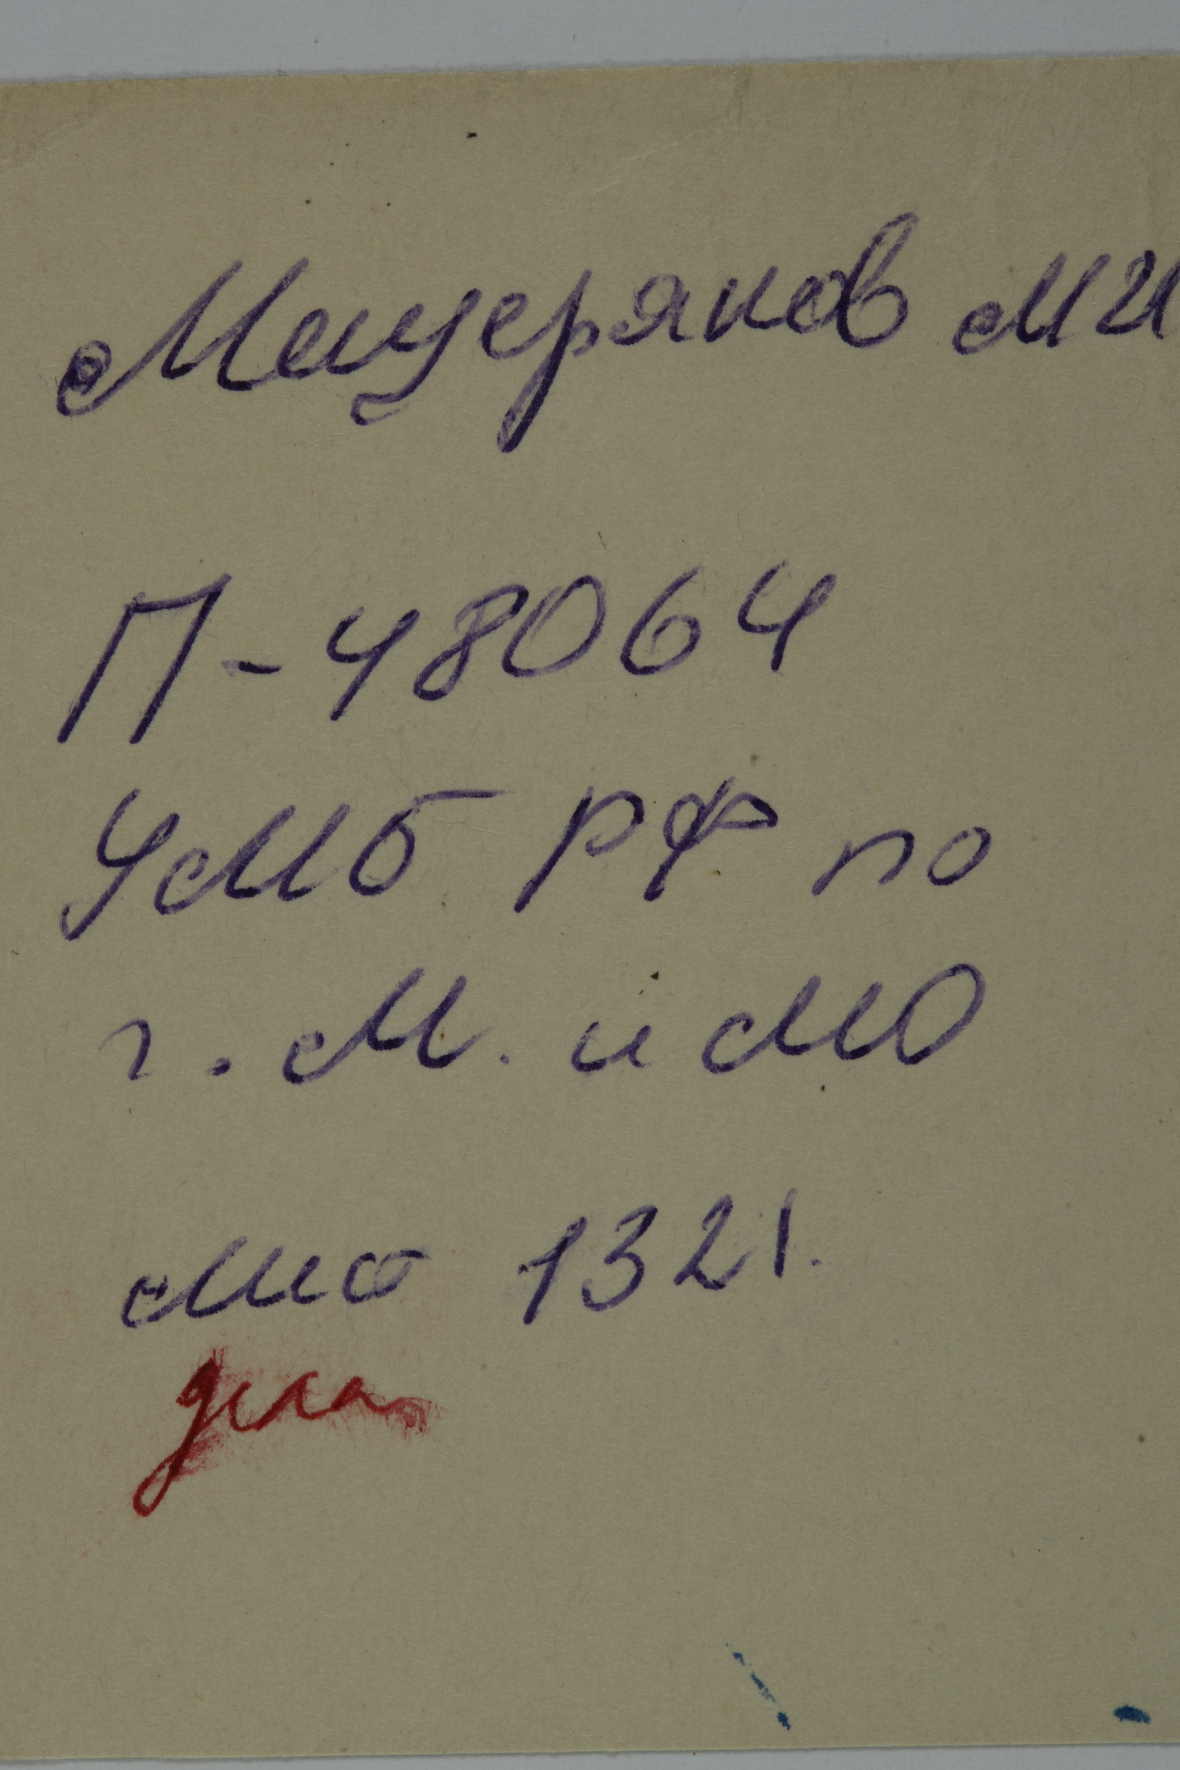 Мещеряков МИ
П-48064
УМБ РФ по
г. М. и МО
1321.
дела